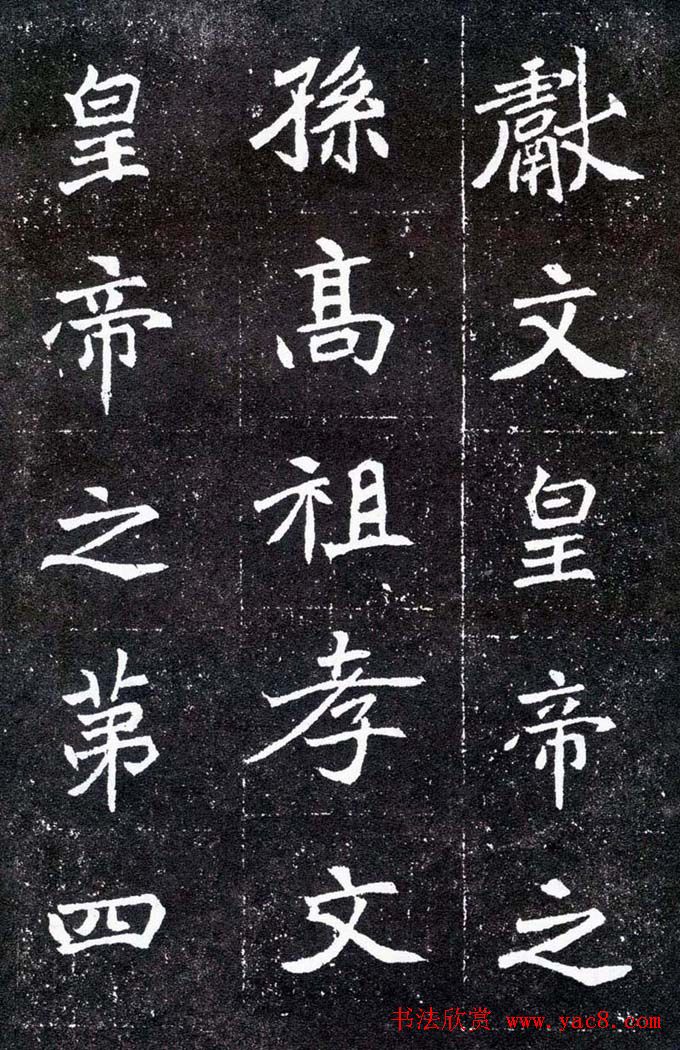 獻文皇帝之
孫高祖孝文
皇帝之第四
书法欣赏 www.yac8.com